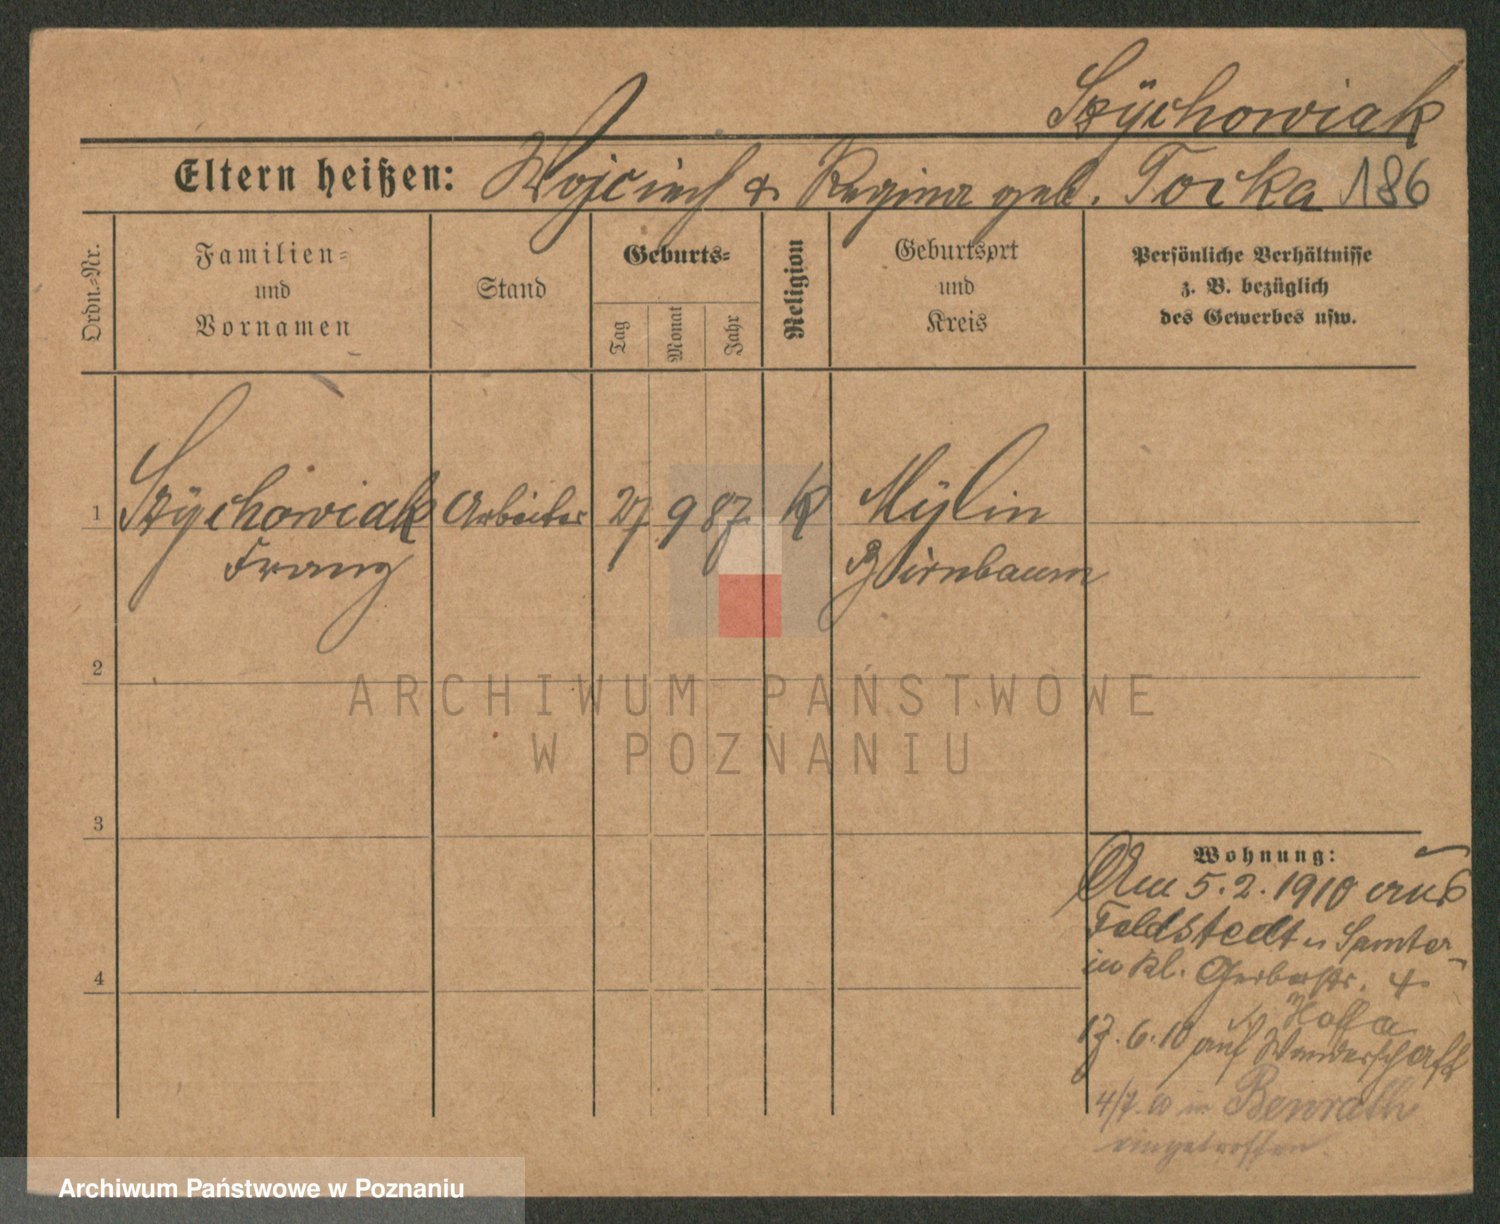 Szÿchowiak
Eltern heißen: Wojciech & Regina geb. Tocka 186
Ordn.-Nr.
Familien-
und
Vornamen
Stand
Geburts-
Tag
Monat
Jahr
Religion
Geburtsort
und
Kreis
Persönliche Verhältnisse
z. B. bezüglich
des Gewerbes usw.
1 Szÿchowiak Arbeiter 27 9 87 K Mÿlin
Franz Birnbaum
2
3
4
Wohnung:
Am 5.2.1910 aus
Feldstedt n Samter
in kl. Gerberstr. 4
b. Hoffa
17.6.10 auf Wanderschaft
4/7.10 in Benrath
eingetroffen.
ARCHIWUM PAŃSTWOWE
W POZNANIU
Archiwum Państwowe w Poznaniu